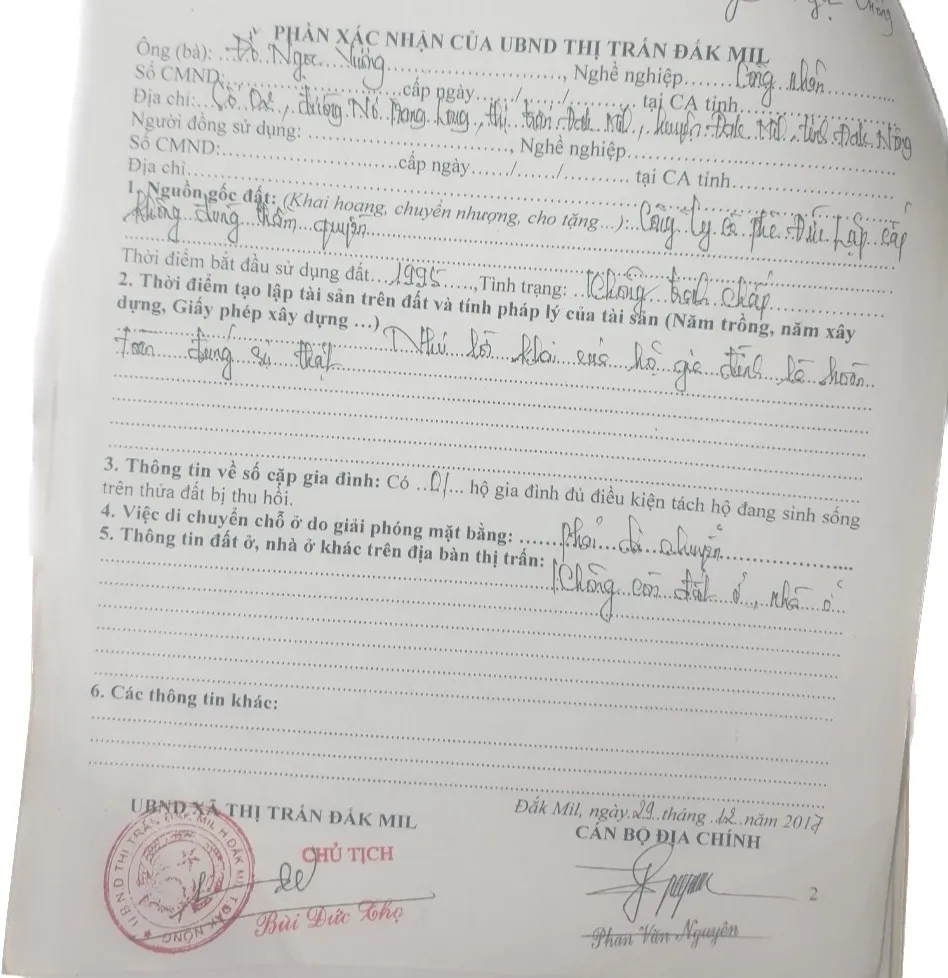 PHẦN XÁC NHẬN CỦA UBND THỊ TRẤN ĐẮK MIL
Ông (bà): Đỗ Ngọc Vượng, Nghề nghiệp Công nhân
Số CMND: cấp ngày / / tại CA tỉnh
Địa chỉ: thị trấn Đak Mil, huyện Đak Mil, tỉnh Đak Nông
Người đồng sử dụng: , Nghề nghiệp
Số CMND: cấp ngày / / tại CA tỉnh
Địa chỉ
1. Nguồn gốc đất: (Khai hoang, chuyển nhượng, cho tặng...): Công ty cà phê Đức Lập cấp
không đúng thẩm quyền
Thời điểm bắt đầu sử dụng đất 1995, Tình trạng: Không tranh chấp
2. Thời điểm tạo lập tài sản trên đất và tính pháp lý của tài sản (Năm trồng, năm xây
dựng, Giấy phép xây dựng ...) Như tờ khai của hộ gia đình là hoàn
toàn đúng sự thật
3. Thông tin về số cặp gia đình: Có 01 hộ gia đình đủ điều kiện tách hộ đang sinh sống
trên thửa đất bị thu hồi.
4. Việc di chuyển chỗ ở do giải phóng mặt bằng: Phải di chuyển
5. Thông tin đất ở, nhà ở khác trên địa bàn thị trấn:
Không còn đất ở, nhà ở
6. Các thông tin khác:
Đắk Mil, ngày 29 tháng 12 năm 2017
UBND XÃ THỊ TRẤN ĐẮK MIL
CÁN BỘ ĐỊA CHÍNH
CHỦ TỊCH
U.B.N.D THỊ TRẤN ĐĂK MIL H.ĐĂK MIL T.ĐĂK NÔNG
2
Bùi Đức Thọ
Phan Văn Nguyên